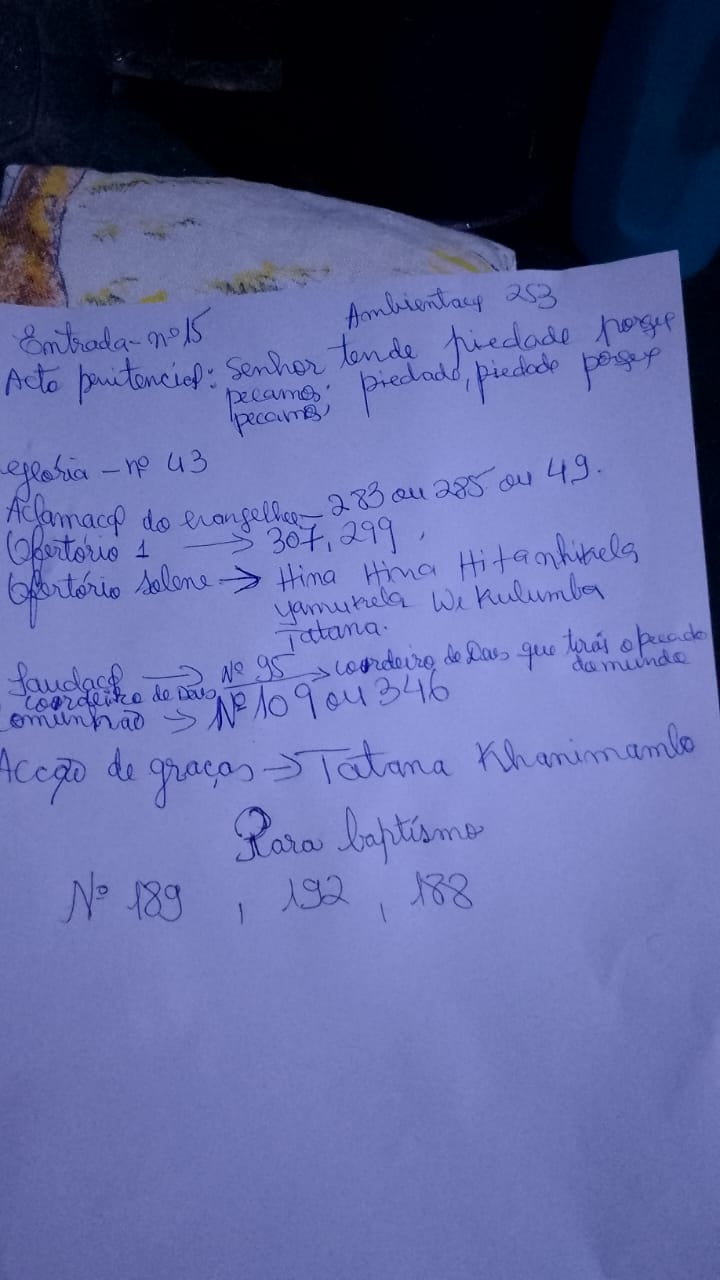 Ambientaçº 253
Entrada - nº 15
Acto penitencial: Senhor tende piedade porque
pecamos; piedade, piedade porque
pecamos,
egloria - nº 43
Aclamaçº do evangelho - 283 ou 285 ou 49.
Ofertório 1 → 307, 299,
Ofertório Solene → Hina Hina Hitanhikela
yamukela We Kulumba
Tatana.
Saudaçº → Nº 95
coordeiro de Daus → coordeiro de Daus que tirás o pecado
do mundo
omunhão → Nº 109 ou 346
Acção de graças → Tatana Khanimambo
Para baptísmo
Nº 189, 192, 188